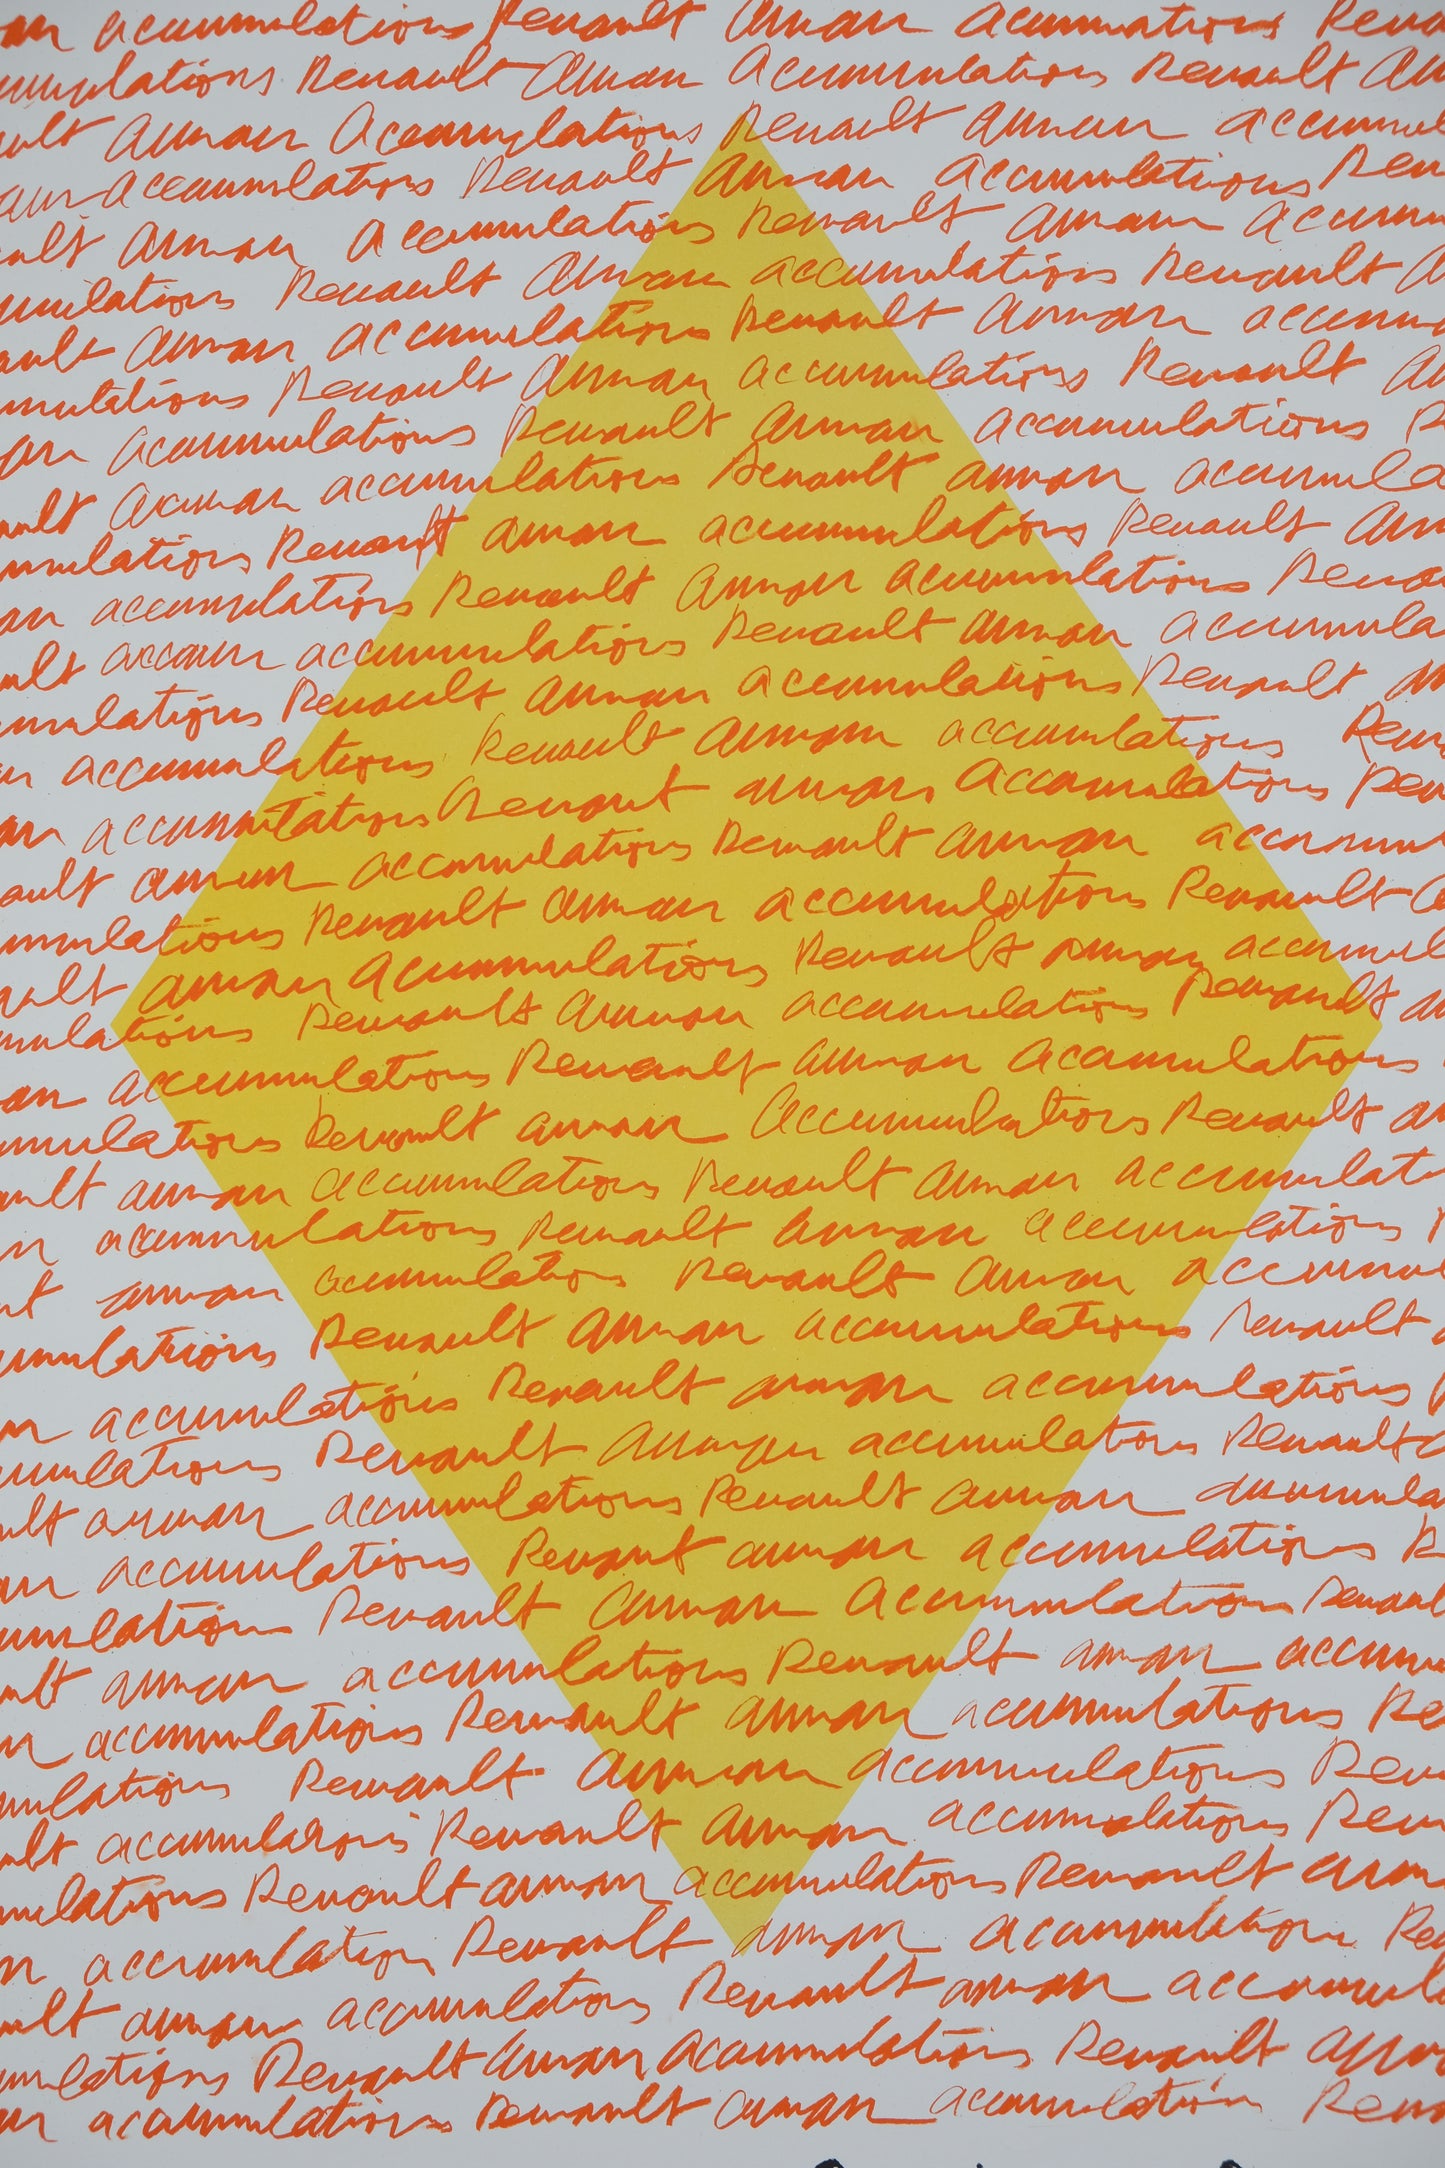 an accumulations Renault Arman accumulations Rena
umulations Renault Arman Accumulations Renault Arm
ult Arman Accumulations Renault Arman accumul
an accumulations Renault Arman accumulations Ren
ult Arman Accumulations Renault Arman Accumu
umulations Renault Arman accumulations Renault A
ault Arman accumulations Renault Arman accumu
mulations Renault Arman accumulations Renault Ar
an accumulations Renault Arman accumulations R
ault Arman accumulations Renault arman accumula
mulations Renault arman accumulations Renault Arm
an accumulations Renault Arman accumulations Rena
ult accumulations Renault Arman accumula
mulations Renault Arman accumulations Renault
n accumulations Renault Arman accumulations Rena
an accumulations Renault arman Accumulations Ren
ault arman accumulations Renault arman accumu
mulations Renault Arman accumulations Renault a
ault arman Accumulations Renault arman accumul
mulations Renault Arman accumulations Renault a
an accumulations Renault Arman Accumulations
mulations Renault arman Accumulations Renault a
ult arman accumulations Renault Arman accumulati
n accumulations Renault Arman accumulations R
lt arman accumulations Renault Arman accumul
umulations Renault Arman accumulations Renault
n accumulations Renault arman accumulations
umulations Renault Arman accumulations Renault
ult arman accumulations Renault arman accumula
an accumulations Renault arman accumulations R
umulations Renault Arman Accumulations Renaul
ult arman accumulations Renault arman accumu
n accumulations Renault arman accumulations Re
mulations Renault Arman accumulations Ren
ult accumulations Renault Arman accumulations Ren
mulations Renault arman accumulations Renault arm
n accumulation Renault arman accumulations Re
ult arman accumulations Renault arman accumul
mulations Renault Arman Accumulations Renault arm
an accumulations Renault arman accumulations Rena